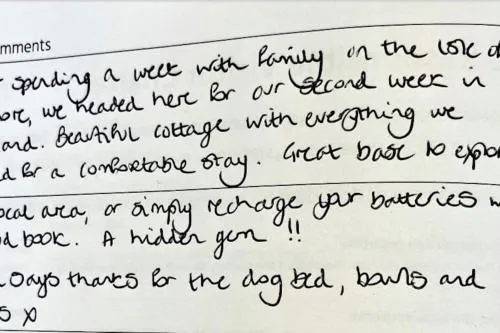 mments
spending a week with family on the Isle of
ore, we headed here for our second week in
and. Beautiful cottage with everything we
d for a comfortable stay. Great base to explor
ocal area, or simply recharge your batteries w
d book. A hidden gem !!
says thanks for the dog bed, bowls and
s x